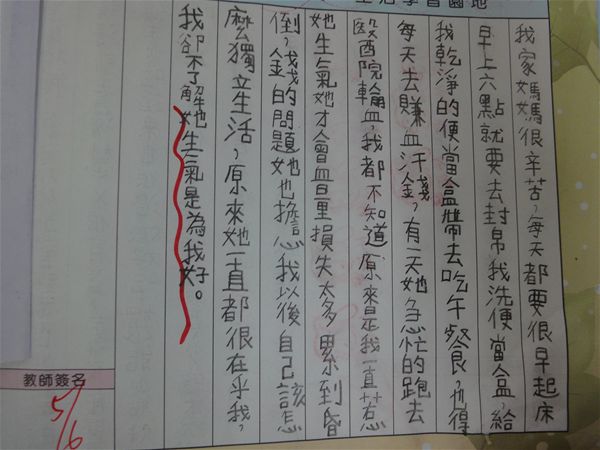 生活學習園地
我家媽媽很辛苦，每天都要很早起床
早上六點就要去封帛我洗便當盒，給
我乾淨的便當盒帶去吃午餐，也得
每天去賺血汗錢，有一天她急忙的跑去
醫院輸血，我都不知道原來是我一直惹
她生氣她才會血量損失太多累到昏
倒，錢的問題她也擔心我以後自己該怎
麼獨立生活，原來她一直都很在乎我，
我卻不了解她生氣是為我好。
教師簽名
5/6